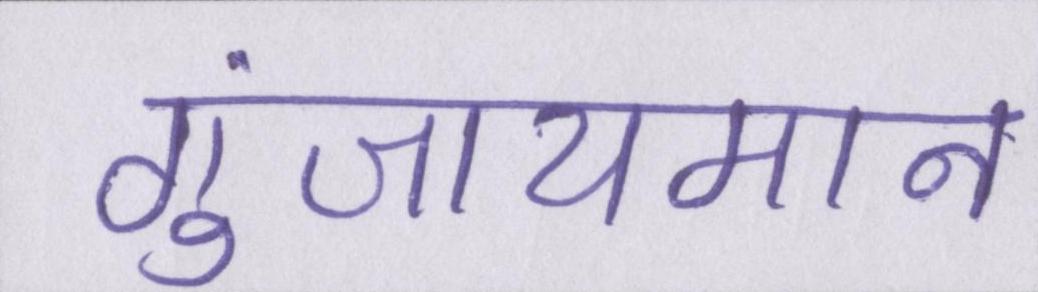 गुंजायमान